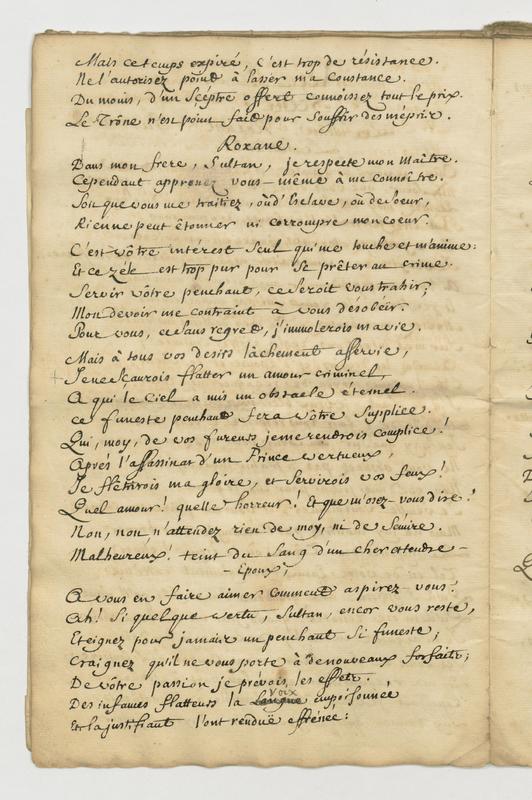 Mais ce temps expiré, c'est trop de résistance.
Ne l'autorisez point à lasser ma constance.
Du moins, d'un Sçéptre offert connoissez tout le prix.
Le Trône n'est point fait pour souffrir des mépris.
Roxane.
Dans mon frere, Sultan, je respecte mon Maître.
Cependant apprenez vous-même à me connoître.
Soit que vous me traitiez, où d'Esclave, où de Soeur,
Rien ne peut êtonner ni corrompre mon coeur.
C'est vôtre intérest seul qui me touche et m'anime:
Et ce zéle est trop pur pour se prêter au crime.
Servir vôtre penchant, ce seroit vous trahir;
Mon devoir me contraint à vous désobéir.
Pour vous, et sans regret, j'immolerois ma vie.
Mais à tous vos desirs lâchement asservie,
+ Je ne sçaurois flatter un amour criminel,
A qui le Ciel a mis un obstacle éternel.
ce funeste penchant fera vôtre supplice.
Qui, moy, de vos fureurs je me rendrois complice!
Aprés l'assassinat d'un Prince vertueux,
Je flétrirois ma gloire, et servirois vos feux!
Quel amour! quelle horreur! Et que m'osez-vous dire!
Non, non, n'attendez rien de moy, ni de Sémire.
Malheureux! teint du sang d'un cher et tendre
- Epoux,
A vous en faire aimer comment aspirez-vous?
Ah! Si quelque vertu, Sultan, encor vous reste,
Eteignez pour jamais un penchant si funeste;
Craignez qu'il ne vous porte à de nouveaux forfaits;
De vôtre passion je prévois les effets.
Des infames flatteurs la langue voix empoisonnée
En la justifiant l'ont renduë effrénée: